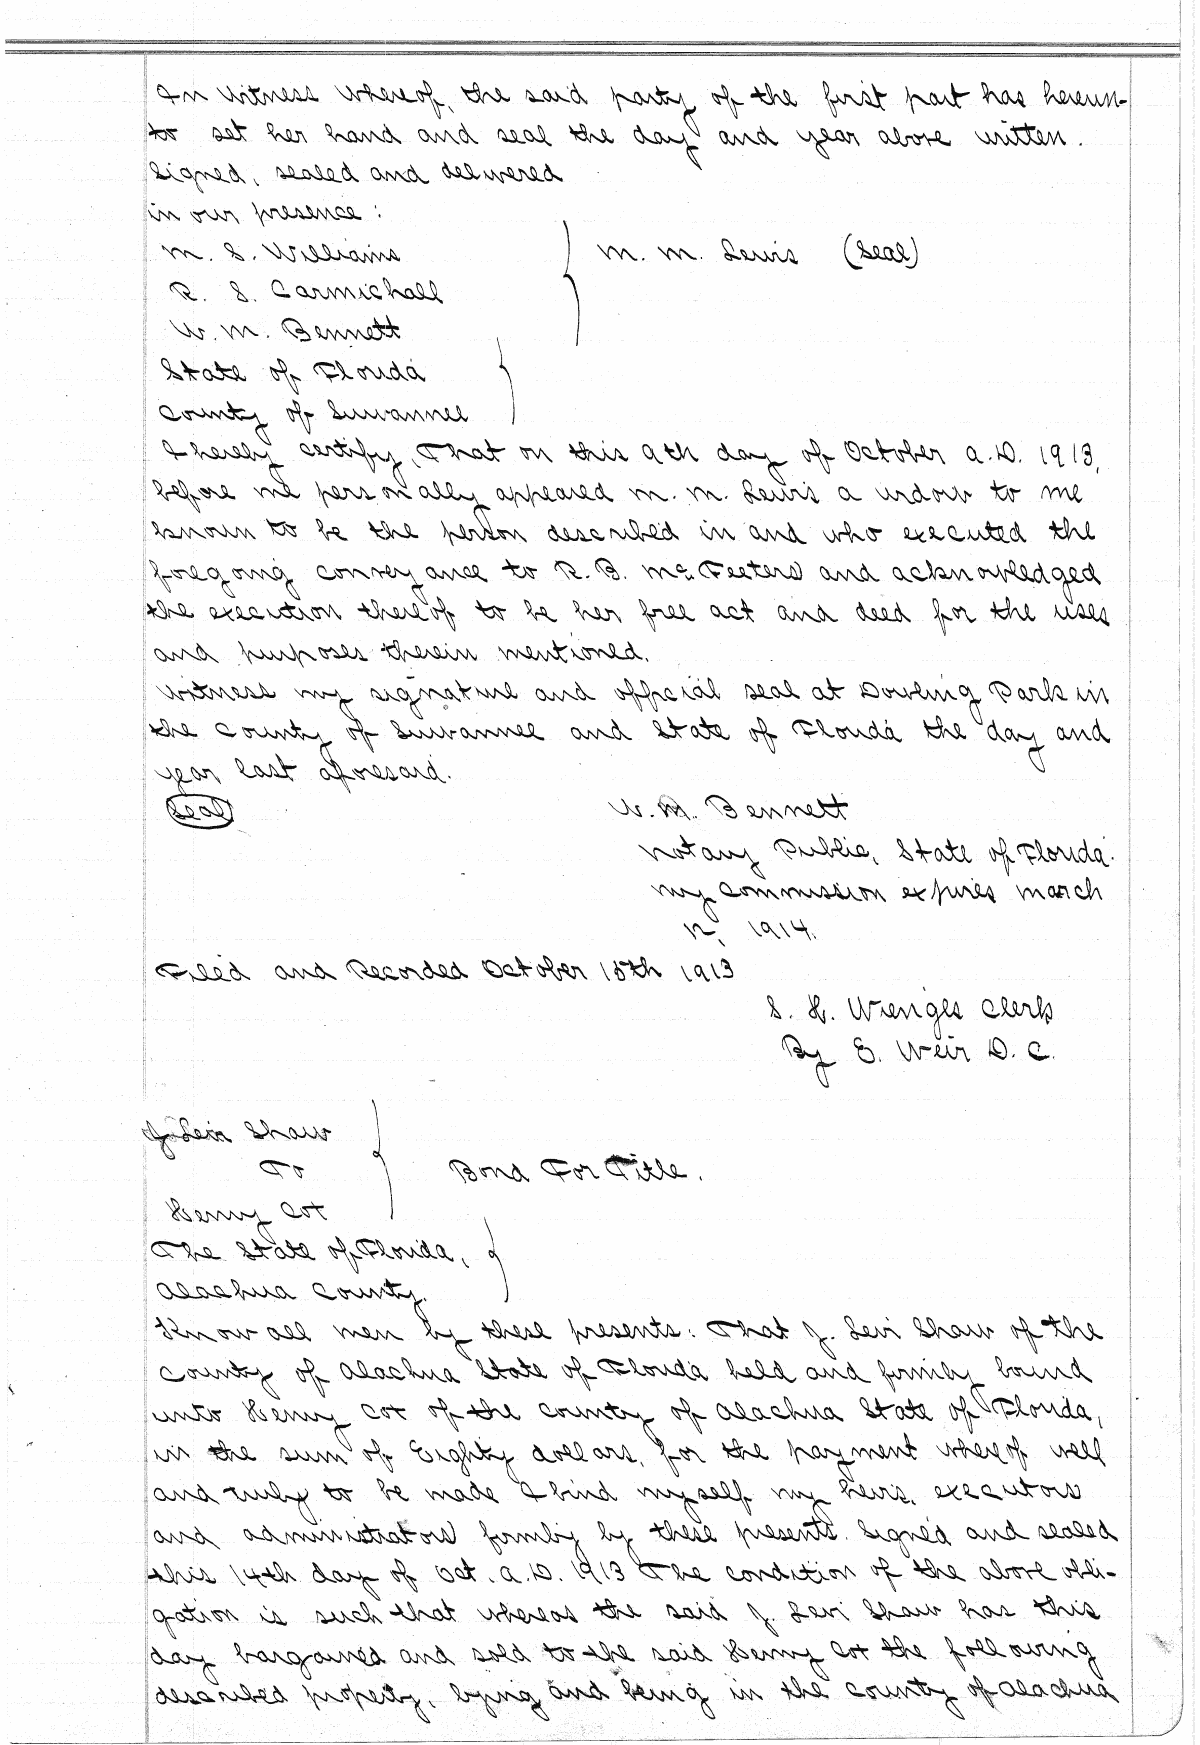 In Witness Whereof, the said party of the first part has hereun-
to set her hand and seal the day and year above written.
Signed, sealed and delivered
in our presence:
M. S. Williams
M. M. Lewis (Seal)
R. S. Carmichall
W. M. Bennett
State of Florida
County of Suwannee
I hereby certify, That on this 9th day of October A.D. 1913,
before me personally appeared M. M. Lewis a widow to me
known to be the person described in and who executed the
foregoing conveyance to R. B. McFeeters and acknowledged
the execution thereof to be her free act and deed for the uses
and purposes therein mentioned.
Witness my signature and official seal at Dowling Park in
the County of Suwannee and State of Florida the day and
year last aforesaid.
Seal
W. M. Bennett
Notary Public, State of Florida.
My commission expires March
12, 1914.
Filed and Recorded October 15th 1913
S. H. Wienges Clerk
By E. Weir D. C.
J. Levi Shaw
To
Bond For Title.
Henry Cot
The State of Florida,
Alachua County.
Know all men by these presents: That J. Levi Shaw of the
County of Alachua State of Florida held and firmly bound
unto Henry Cot of the County of Alachua State of Florida,
in the sum of Eighty dollars, for the payment whereof well
and truly to be made I bind myself my heirs, executors
and administrators firmly by these presents. Signed and sealed
this 14th day of Oct. A.D. 1913 The condition of the above obli-
gation is such that whereas the said J. Levi Shaw has this
day bargained and sold to the said Henry Cot the following
described property, lying and being in the County of Alachua